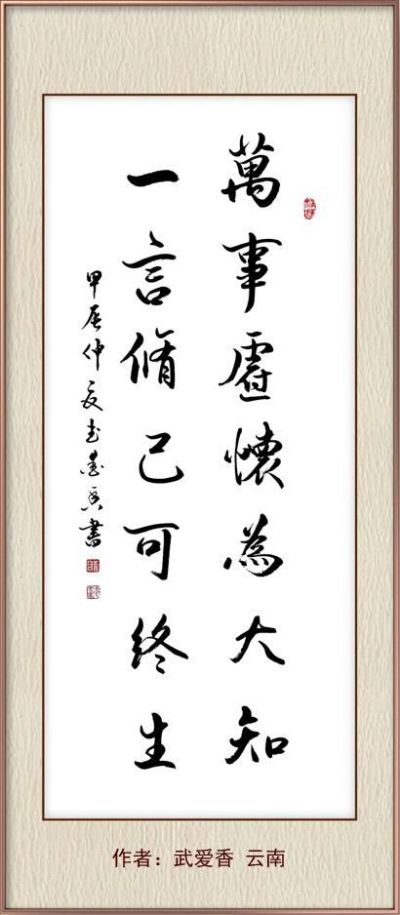 萬事虛懷為大知
一言脩己可終生
甲辰仲夏武爱香書
作者：武爱香 云南